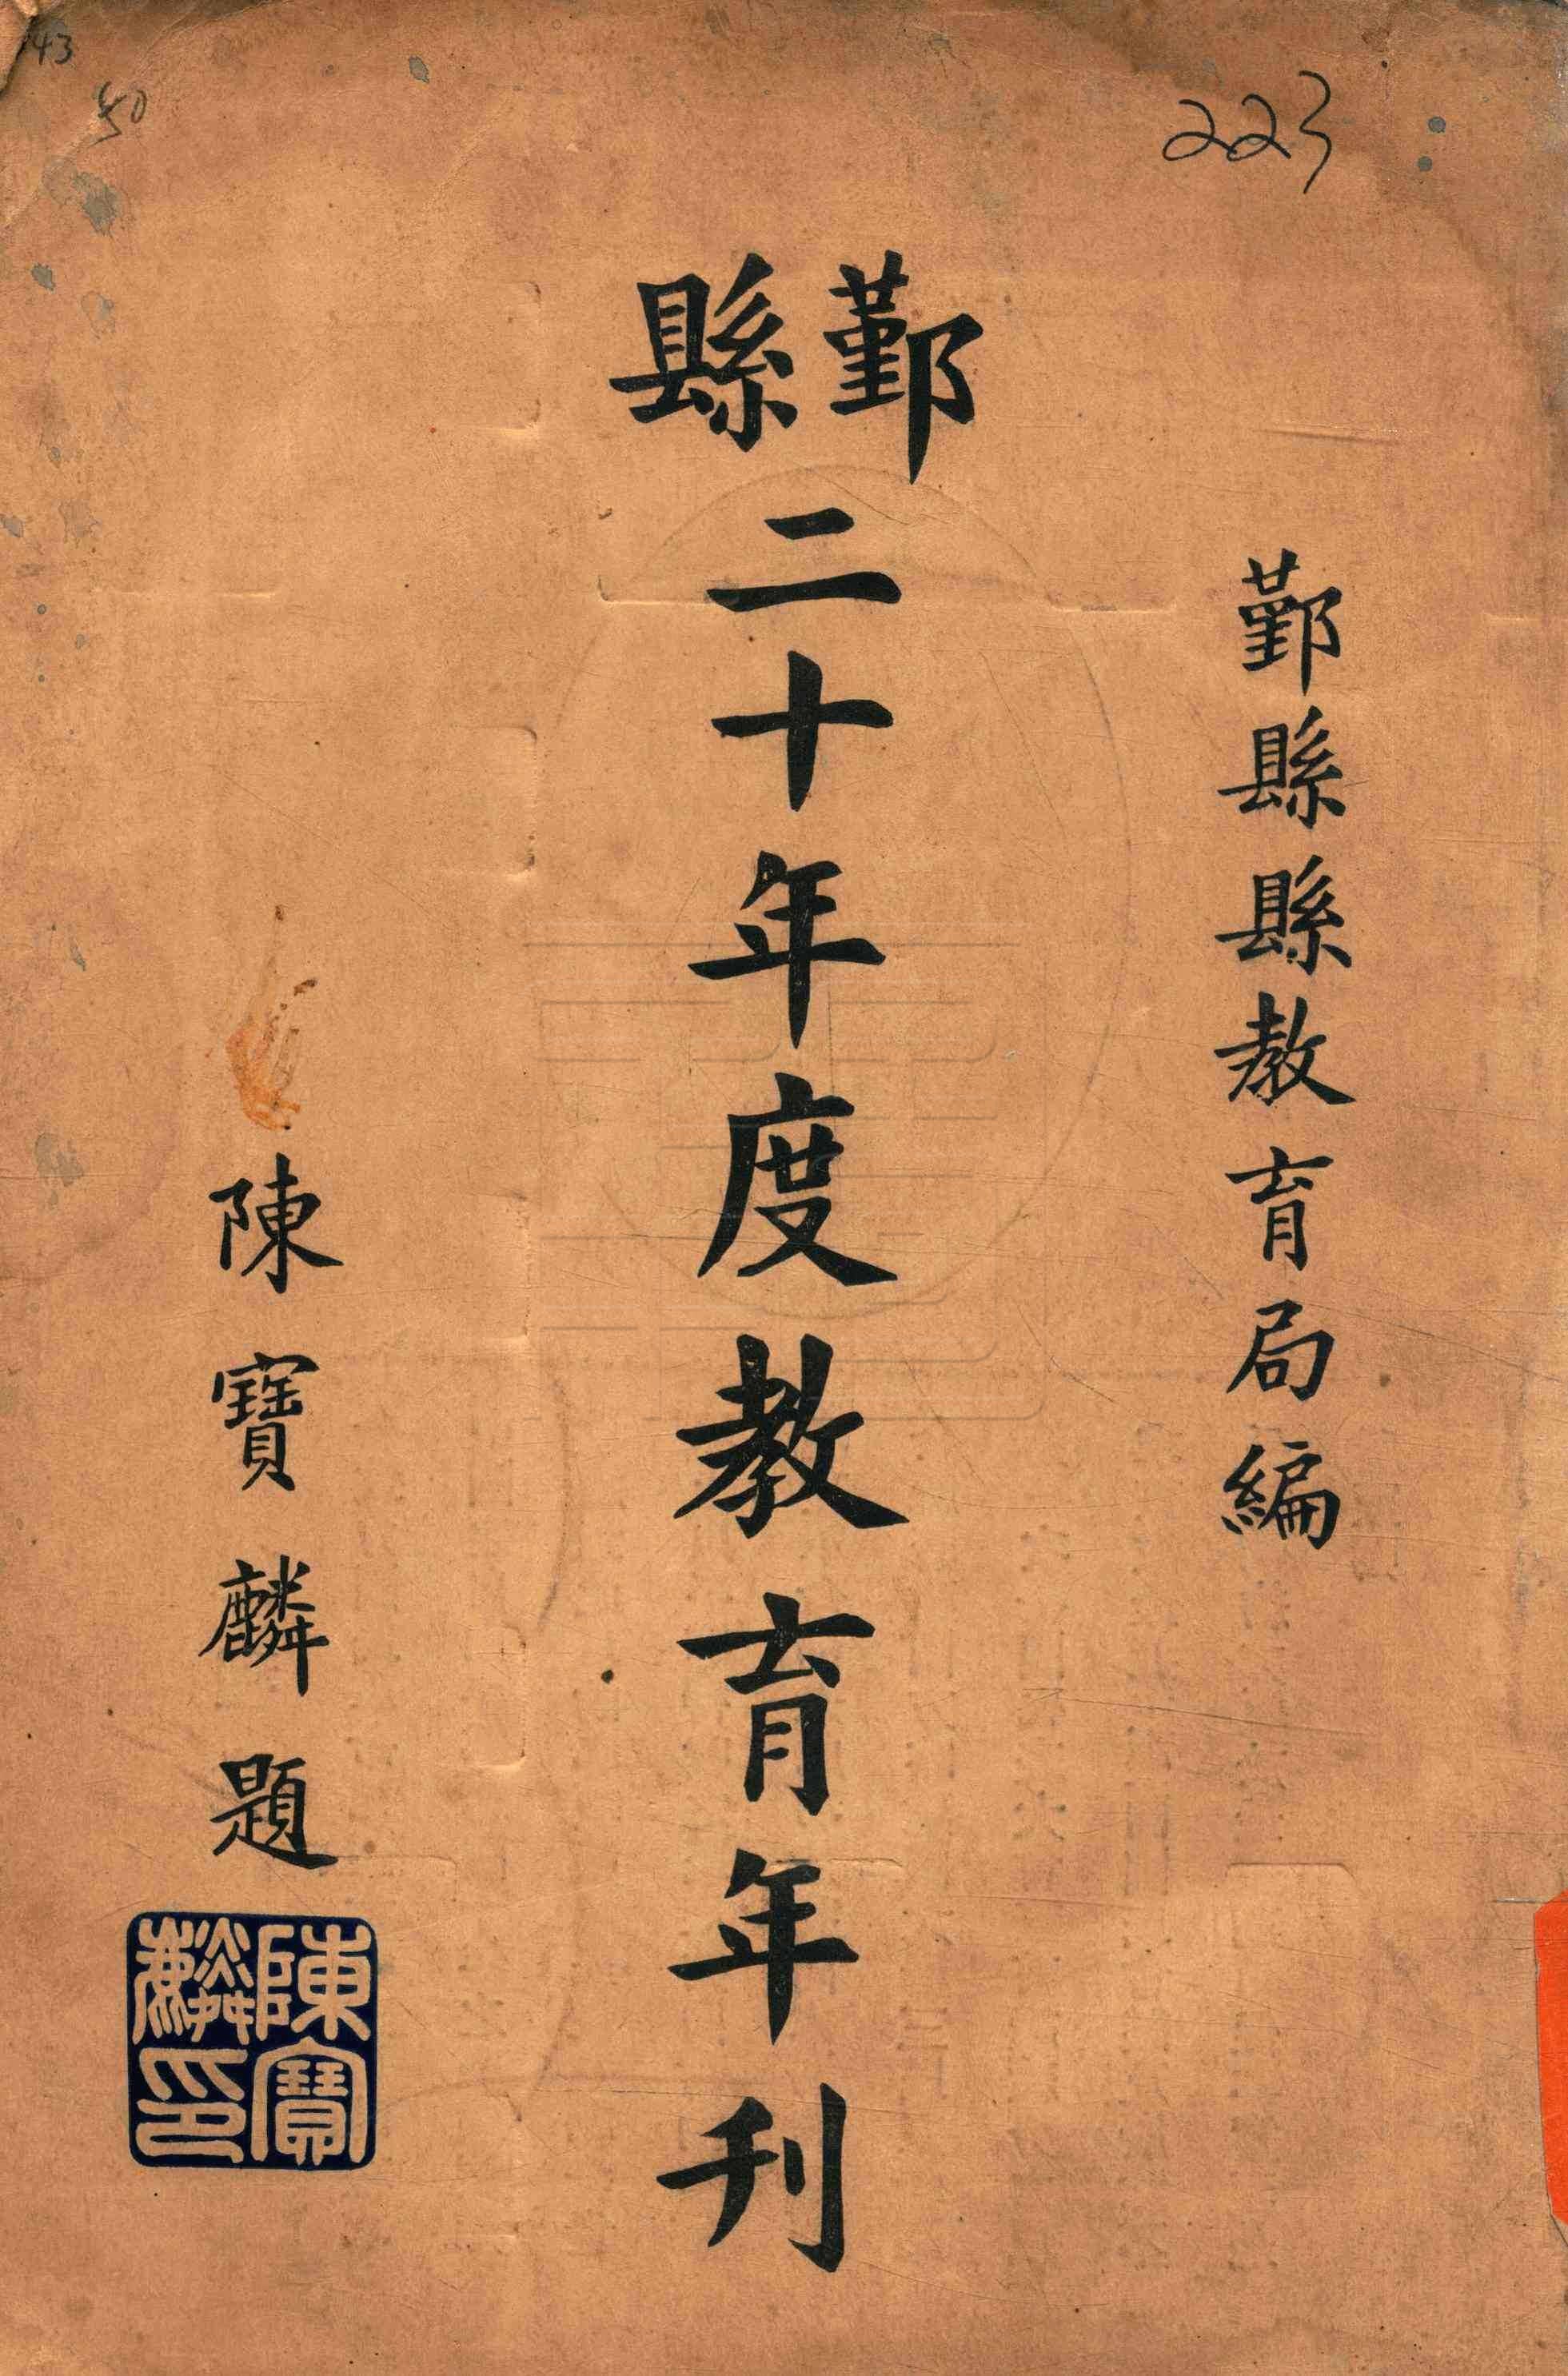 43
50
223
鄞縣縣教育局編
鄞縣
二十年度教育年刊
陳寶麟題
陳寶
麟印